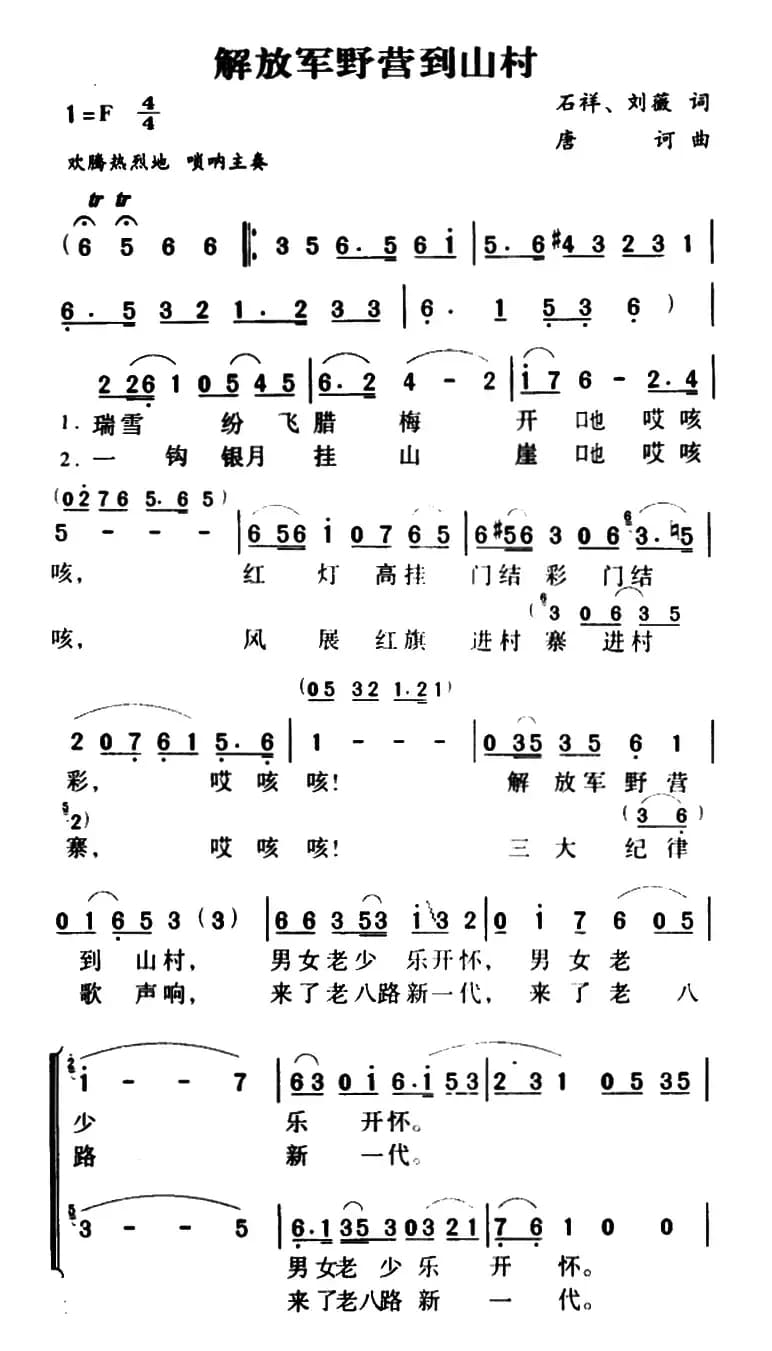 解放军野营到山村
1=F 4/4
石祥、刘薇 词
唐 诃 曲
欢腾热烈地 唢呐主奏
tr tr
(6 5 6 6 ‖: 3 5 6. 5 6 i | 5. 6 #4 3 2 3 1 |
6. 5 3 2 1. 2 3 3 | 6. 1 5 3 6 ) |
2 2 6 1 0 5 4 5 | 6. 2 4 - 2 | i 7 6 - 2. 4 |
1. 瑞雪 纷 飞 腊 梅 开 吔 哎 咳
2. 一 钩 银月 挂 山 崖 吔 哎 咳
(0 2 7 6 5. 6 5)
5 - - - | 6 5 6 i 0 7 6 5 | 6 #5 6 3 0 6 6 3. ♮5 |
咳, 红 灯 高挂 门结 彩 门结
(6 3 0 6 3 5
咳, 风 展 红旗 进村 寨 进村
(0 5 3 2 1. 2 1)
2 0 7 6 1 5. 6 | 1 - - - | 0 3 5 3 5 6 1 |
彩, 哎 咳 咳! 解 放军 野 营
5 2) (3 6)
寨, 哎 咳 咳! 三 大 纪 律
0 1 6 5 3 (3) | 6 6 3 5 3 i 3 2 | 0 i 7 6 0 5 |
到 山村, 男女老少 乐开怀, 男 女 老
歌 声响, 来了老八路新一代, 来 了 老 八
2 i - - 7 | 6 3 0 i 6. i 5 3 | 2 3 1 0 5 3 5 |
少 乐 开怀。
路 新 一代。
5 3 - - 5 | 6. 1 3 5 3 0 3 2 1 | 7 6 1 0 0 |
男女老 少 乐 开 怀。
来了老八路 新 一 代。